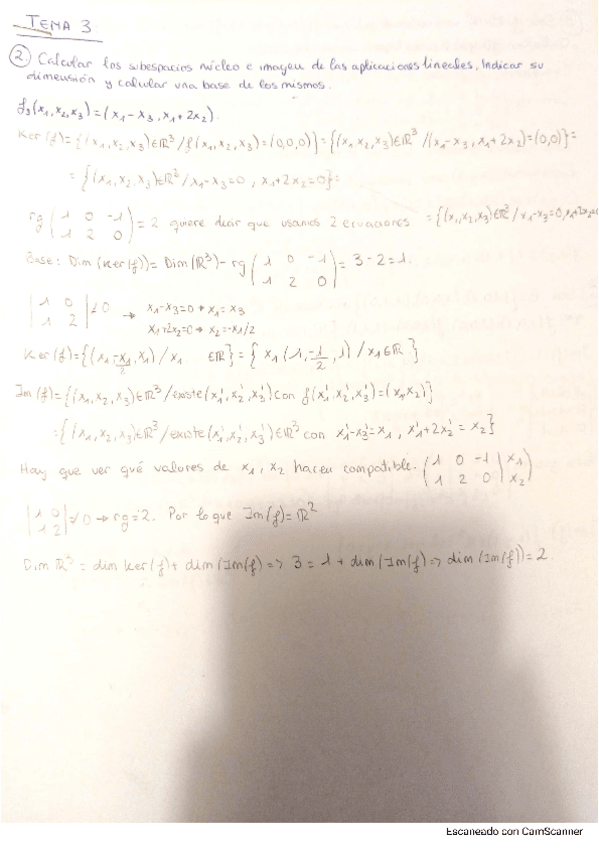 TEMA 3
② Calcular los subespacios núcleo e imagen de las aplicaciones lineales. Indicar su
dimensión y calcular una base de los mismos.
f₃(x₁,x₂,x₃)=(x₁-x₃, x₁+2x₂).
Ker(f)={(x₁,x₂,x₃)∈ℝ³/f(x₁,x₂,x₃)=(0,0,0)}={(x₁,x₂,x₃)∈ℝ³/(x₁-x₃, x₁+2x₂)=(0,0)}=
={(x₁,x₂,x₃)∈ℝ³/x₁-x₃=0, x₁+2x₂=0}=
rg (1 0 -1; 1 2 0) = 2 quiere decir que usamos 2 ecuaciones ={(x₁,x₂,x₃)∈ℝ³/x₁-x₃=0, x₁+2x₂=0
Base: Dim(Ker(f))= Dim(ℝ³)-rg (1 0 -1; 1 2 0) = 3-2=1.
|1 0; 1 2| ≠0 → x₁-x₃=0 → x₁=x₃
x₁+2x₂=0 → x₂=-x₁/2
Ker(f)={(x₁,-x₁/2,x₁)/x₁ ∈ℝ}={x₁(1,-1/2,1)/x₁∈ℝ}
Im(f)={(x₁,x₂,x₃)∈ℝ³/existe(x₁',x₂',x₃') con f(x₁',x₂',x₃')=(x₁,x₂)}
={(x₁,x₂,x₃)∈ℝ³/existe(x₁',x₂',x₃')∈ℝ³ con x₁'-x₃'=x₁, x₁'+2x₂'=x₂}
Hay que ver qué valores de x₁, x₂ hacen compatible. (1 0 -1 | x₁; 1 2 0 | x₂)
|1 0; 1 2| ≠0 → rg=2. Por lo que Im(f)=ℝ²
Dim ℝ³ = dim Ker(f)+dim(Im(f) => 3 = 1 + dim(Im(f) => dim(Im(f))=2.
Escaneado con CamScanner